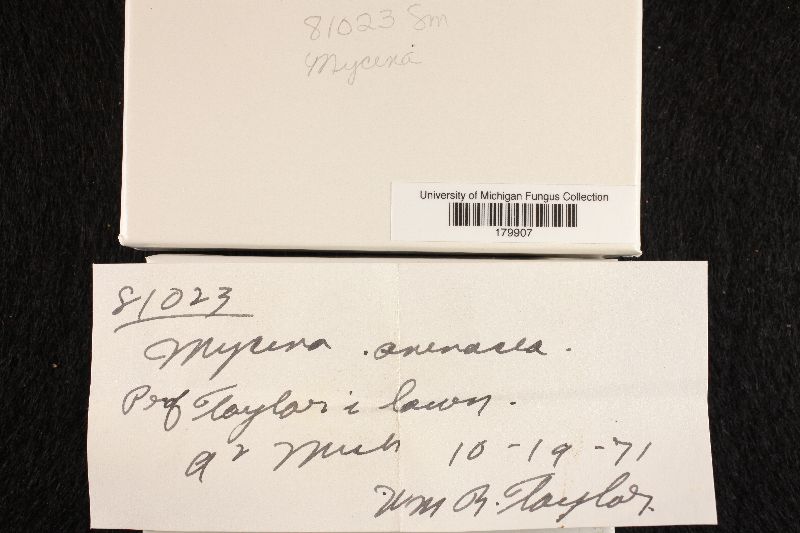 81023 Sm
Mycena
University of Michigan Fungus Collection
179907
81023
Mycena avenacea.
Prof Taylor's lawn.
A2 Mich 10-19-71
Wm R. Taylor.